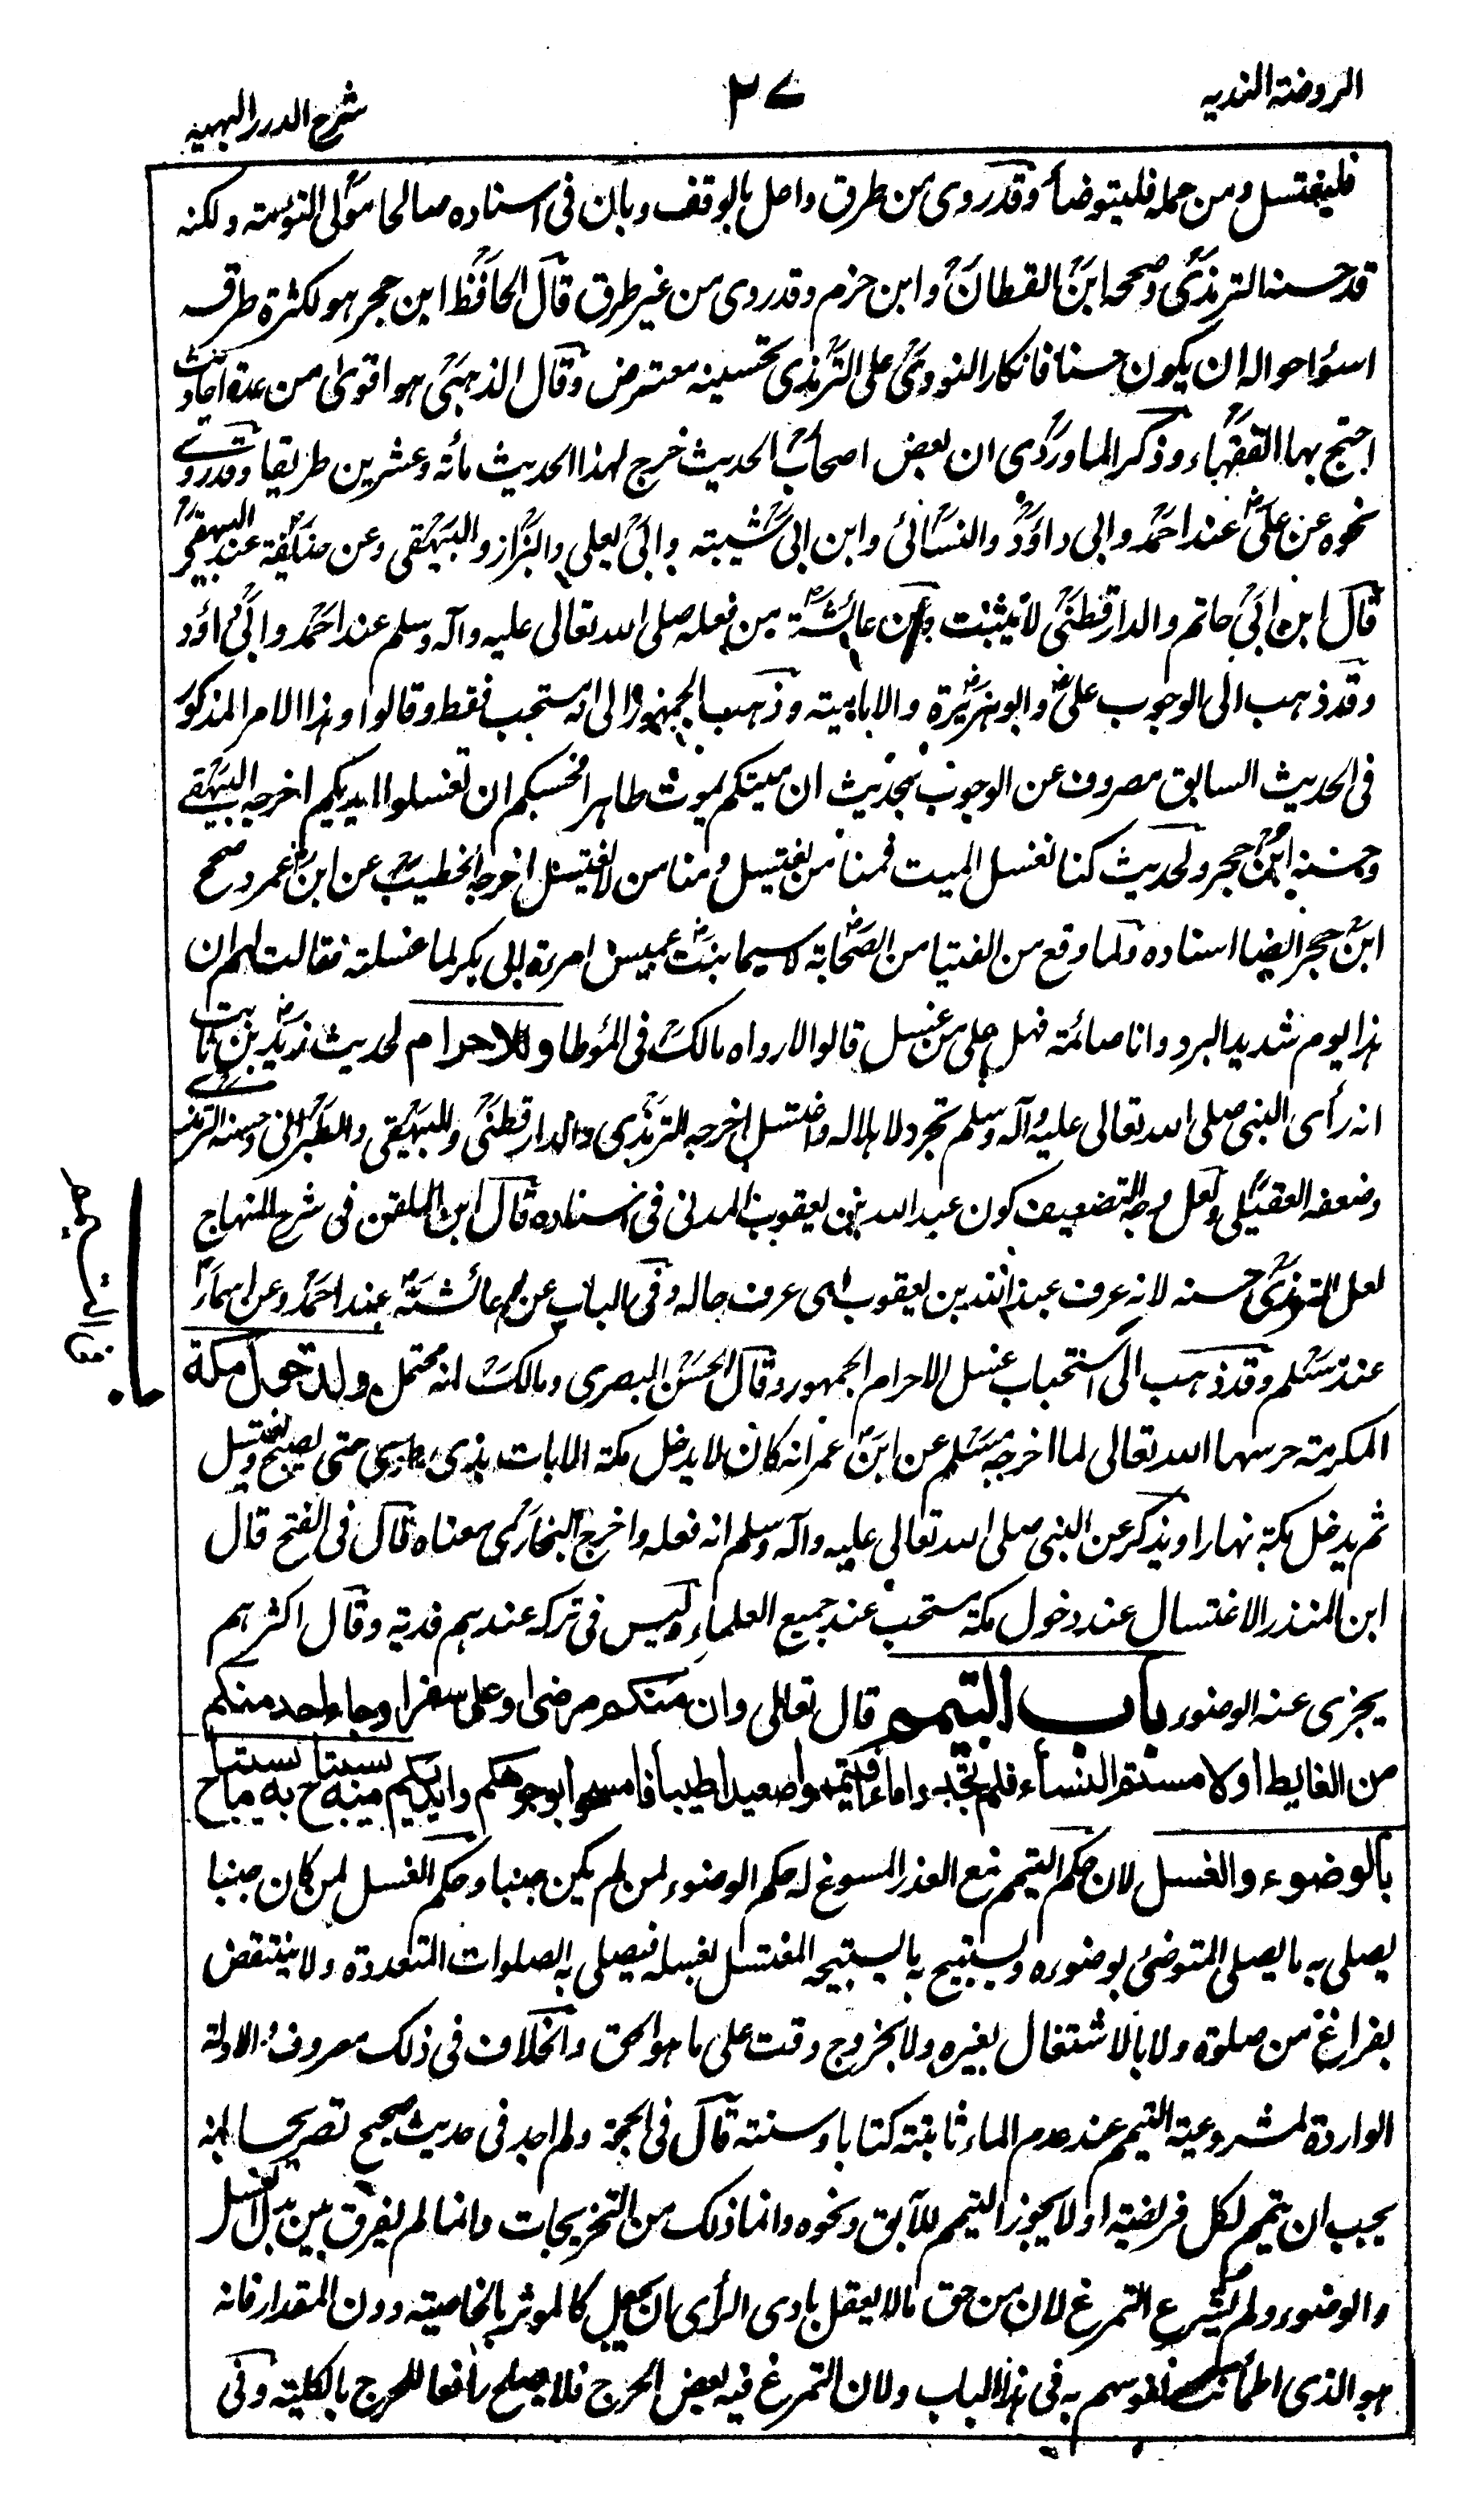 الروضة الندية
٣٧
شرح الدرر البهية
فليغتسل ومن حمله فليتوضأ وقد روى من طرق واعل بالوقف وبان فى اسناده صالحا مولى التوءمة ولكنه
قد حسنه الترمذى وصححه ابن القطان وابن حزم وقد روى من غير طرق قال الحافظ ابن حجر هو لكثرة طرقه
اسوأ احواله ان يكون حسنا فانكار النووى على الترمذى تحسينه معترض وقال الذهبى هو اقوى من عدة احاديث
احتج بها الفقهاء وذكر الماوردى ان بعض اصحاب الحديث خرج لهذا الحديث مائة وعشرين طريقا وقد روى
نحوه عن على عند احمد وابى داؤد والنسائى وابن ابى شيبة وابى يعلى والبزار والبيهقى وعن حذيفة عند البيهقى
قال ابن ابى حاتم والدارقطنى لا يثبت وعن عائشة من فعله صلى الله تعالى عليه وآله وسلم عند احمد وابى داؤد
وقد ذهب الى الوجوب على وابو هريرة والامامية وذهب الجمهور الى انه مستحب فقط وقالوا وهذا الامر المذكور
فى الحديث السابق مصروف عن الوجوب بحديث ان ميتكم يموت طاهرا فحسبكم ان تغسلوا ايديكم اخرجه البيهقى
وحسنه ابن حجر ولحديث كنا نغسل الميت فمنا من يغتسل ومنا من لا يغتسل اخرجه الخطيب عن ابن عمر وصحح
ابن حجر ايضا اسناده ولما وقع من الفتيا من الصحابة لاسيما بنت عميس امرءة ابى بكر لما غسلته فقالت لهم ان
هذا يوم شديد البرد وانا صائمة فهل على من غسل قالوا لا رواه مالك فى المؤطا وللاحرام لحديث زيد بن ثابت
انه رأى النبى صلى الله تعالى عليه وآله وسلم تجرد لاهلاله واغتسل اخرجه الترمذى والدارقطنى والبيهقى والطبرانى وحسنه الترمذى
وضعفه العقيلى ولعل وجه التضعيف كون عبد الله بن يعقوب المدنى فى اسناده قال ابن الملقن فى شرح المنهاج
لعل الترمذى حسنه لانه عرف عبد الله بن يعقوب اى عرف حاله وفى الباب عن عائشة عند احمد وعن اسماء
عند مسلم وقد ذهب الى استحباب غسل الاحرام الجمهور وقال الحسن البصرى ومالك انه محتمل ولدخول مكة
المكرمة حرسها الله تعالى لما اخرجه مسلم عن ابن عمر انه كان لا يدخل مكة الا بات بذى طوى حتى يصبح ويغتسل
ثم يدخل مكة نهارا ويذكر عن النبى صلى الله تعالى عليه وآله وسلم انه فعله واخرج البخارى معناه قال فى الفتح قال
ابن المنذر الاغتسال عند دخول مكة مستحب عند جميع العلماء وليس فى تركه عندهم فدية وقال اكثرهم
يجزى عنه الوضوء باب التيمم قال تعالى وان كنتم مرضى او على سفر او جاء احد منكم
من الغايط او لامستم النساء فلم تجدوا ماء فتيمموا صعيدا طيبا فامسحوا بوجوهكم وايديكم منه يستباح به ما يستباح
بالوضوء والغسل لان حكم التيمم مع العذر المسوغ له حكم الوضوء لمن لم يكن جنبا وحكم الغسل لمن كان جنبا
يصلى به ما يصلى المتوضئ بوضوءه ويستبيح به ما يستبيحه المغتسل بغسله فيصلى به الصلوات المتعددة ولا ينتقض
بفراغ من صلوة ولا بالاشتغال بغيره ولا بخروج وقت على ما هو الحق والخلاف فى ذلك معروف الادلة
الواردة لمشروعية التيمم عند عدم الماء ثابتة كتابا وسنة قال فى الحجة ولم اجد فى حديث صحيح تصريحا بانه
يجب ان يتيمم لكل فريضة او لا يجوز التيمم للآبق ونحوه وانما ذلك من التخريجات وانما لم يفرق بين بدل الغسل
والوضوء ولم يشرع التمرغ لان من حق ما لا يعقل بادى الرأى ان يجعل كالموثر بالخاصية دون المقدار فانه
هو الذى اطمأنت نفوسهم به فى هذا الباب ولان التمرغ فيه بعض الحرج فلا يصلح رافعا للحرج بالكلية وفى